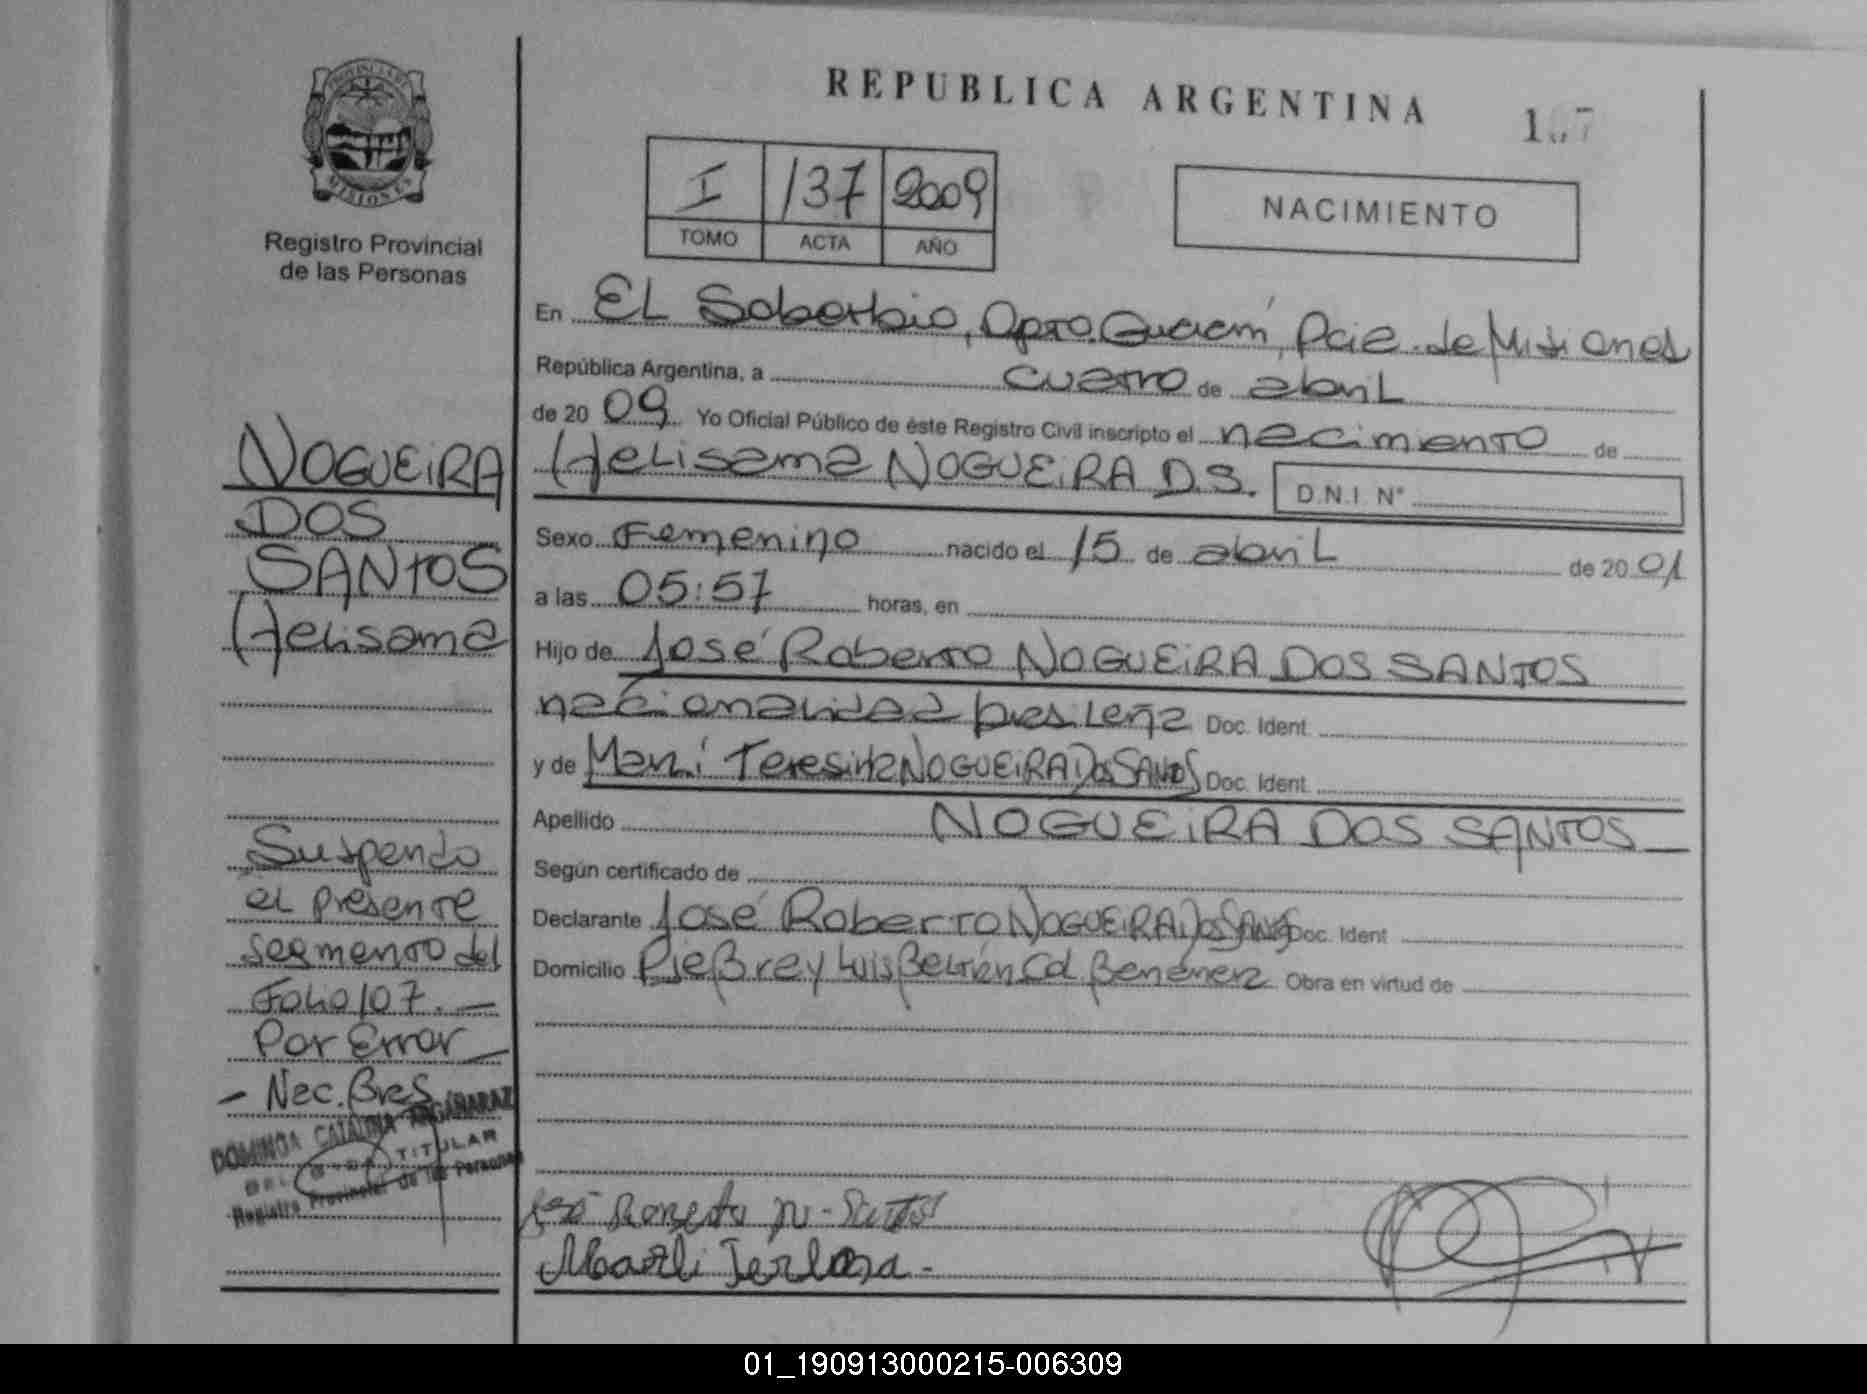 REPUBLICA ARGENTINA
107
PROVINCIA DE
MISIONES
Registro Provincial
de las Personas
I 137 2009
TOMO ACTA AÑO
NACIMIENTO
En EL Soberbio, Dpto. Guaraní, Pcia. de Misiones
República Argentina, a cuatro de abril
de 20 09 Yo Oficial Público de éste Registro Civil inscripto el nacimiento de
Helisama NOGUEIRA D.S. D.N.I. N°
Sexo Femenino nacido el 15 de abril de 20 01
a las 05:57 horas, en
Hijo de José Roberto NOGUEIRA DOS SANTOS
nacionalidad brasileña Doc. Ident.
y de Marli Teresinha NOGUEIRA DOS SANTOS Doc. Ident.
Apellido NOGUEIRA DOS SANTOS
Según certificado de
Declarante José Roberto NOGUEIRA DOS SANTOS Doc. Ident
Domicilio Pje Bº rey Luis Beltrán Col Obra en virtud de
NOGUEIRA
DOS
SANTOS
Helisama
Suspendo
el presente
segmento del
Folio 107. —
Por Error —
- Nac. Bras
DOMINGA CATALINA ARGAÑARAZ
TITULAR
Registro Provincial de las Personas
José Roberto
Marli
01_190913000215-006309